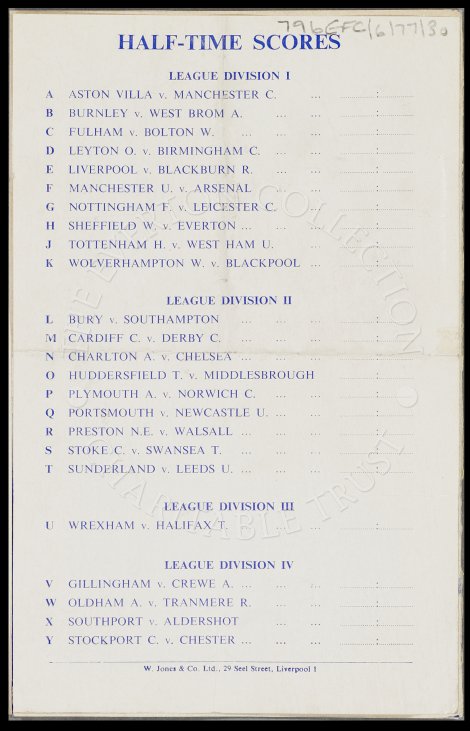 796EFC/6/77/30
HALF-TIME SCORES
LEAGUE DIVISION I
A ASTON VILLA v. MANCHESTER C. ... :
B BURNLEY v. WEST BROM A. ... ... :
C FULHAM v. BOLTON W. ... ... :
D LEYTON O. v. BIRMINGHAM C. ... ... :
E LIVERPOOL v. BLACKBURN R. ... ... :
F MANCHESTER U. v. ARSENAL ... ... :
G NOTTINGHAM F. v. LEICESTER C. ... :
H SHEFFIELD W. v. EVERTON ... ... ... :
J TOTTENHAM H. v. WEST HAM U. ... :
K WOLVERHAMPTON W. v. BLACKPOOL ... :
LEAGUE DIVISION II
L BURY v. SOUTHAMPTON ... ... :
M CARDIFF C. v. DERBY C. ... ... :
N CHARLTON A. v. CHELSEA ... ... ... :
O HUDDERSFIELD T. v. MIDDLESBROUGH :
P PLYMOUTH A. v. NORWICH C. ... ... :
Q PORTSMOUTH v. NEWCASTLE U. ... ... :
R PRESTON N.E. v. WALSALL ... ... ... :
S STOKE C. v. SWANSEA T. ... ... :
T SUNDERLAND v. LEEDS U. ... ... ... :
LEAGUE DIVISION III
U WREXHAM v. HALIFAX T. ... ... :
LEAGUE DIVISION IV
V GILLINGHAM v. CREWE A. ... ... ... :
W OLDHAM A. v. TRANMERE R. ... ... :
X SOUTHPORT v. ALDERSHOT ... ... :
Y STOCKPORT C. v. CHESTER ... ... ... :
W. Jones & Co. Ltd., 29 Seel Street, Liverpool 1
COLLECTION
CHARITABLE TRUST